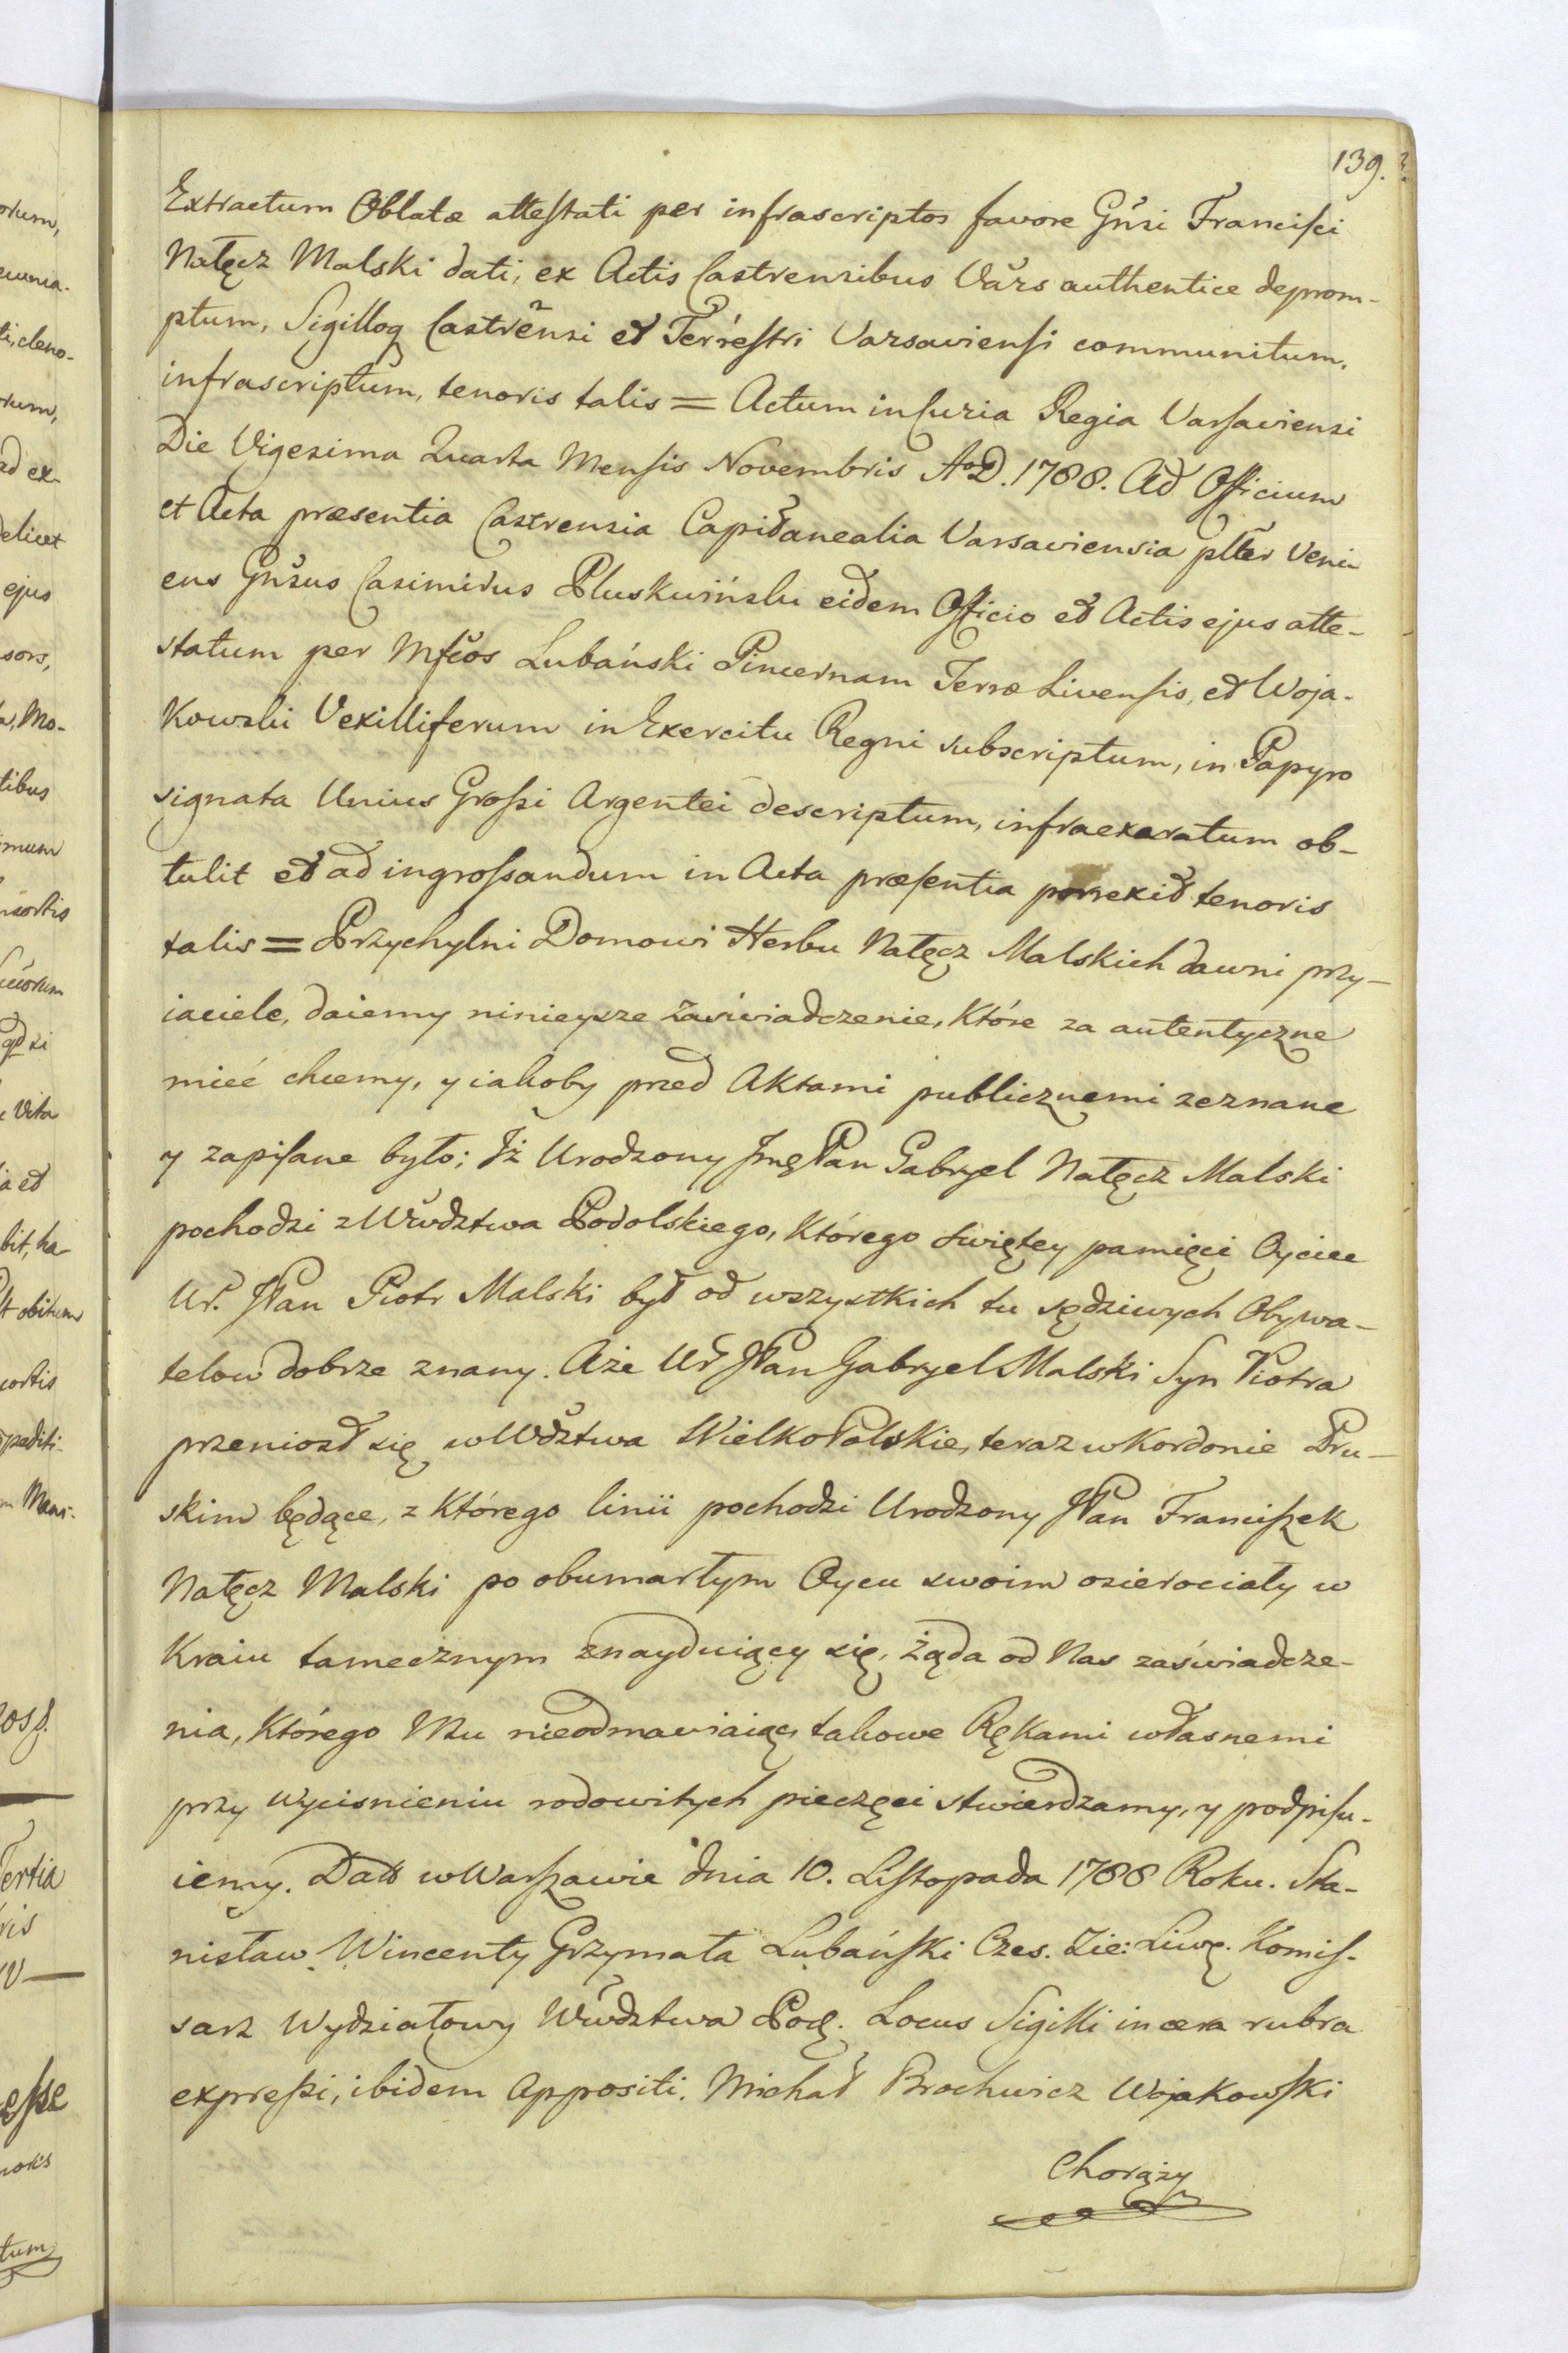 139.
Extractum Oblatæ attestati per infrascriptos favore Gñsi Francisci
Nałęcz Malski dati, ex Actis Castrensibus Vars authentice deprom-
ptum, Sigilloq Castrensi et Terrestri Varsaviensi communitum,
infrascriptum, tenoris talis = Actum in Curia Regia Varsaviensi
Die Vigesima Quarta Mensis Novembris A°D. 1788. Ad Officium
et Acta præsentia Castrensia Capitanealia Varsaviensia plter Veni-
ens Gnsus Casimirus Pluskwiński eidem Officio et Actis ejus atte-
statum per Mfcos Lubański Pincernam Terræ Livensis, et Woja-
kowski Vexilliferum in Exercitu Regni subscriptum, in Papyro
signata Unius Grossi Argentei descriptum, infraexaratum ob-
tulit et ad ingrossandum in Acta præsentia porrexit tenoris
talis = Przychylni Domowi Herbu Nałęcz Malskich dawni przy-
iaciele, daiemy ninieysze zaświadczenie, które za autentyczne
mieć chcemy, y iakoby przed Aktami publicznemi zeznane
y zapisane było; Iż Urodzony Jmę Pan Gabryel Nałęcz Malski
pochodzi z Wwdztwa Podolskiego, którego swiętey pamięci Oyciec
Ur. JPan Piotr Malski był od wszystkich tu sędziwych Obywa-
telow dobrze znany. Aże Ur JPan Gabryel Malski Syn Piotra
przeniosł się w Wdztwa WielkoPolskie, teraz w Kordonie Pru-
skim będące, z którego linii pochodzi Urodzony JPan Franciszek
Nałęcz Malski po obumarłym Oycu swoim osierociały w
Kraiu tamecznym znayduiący się, żąda od Nas zaświadcze-
nia, którego Mu nieodmawiaiąc, takowe Rękami własnemi
przy wycisnieniu rodowitych pieczęci stwierdzamy, y podpisu-
iemy. Datt w Warszawie dnia 10. Listopada 1788 Roku. Sta-
nisław Wincenty Grzymała Lubański Czes. Zie: Liwę. Komis-
sarz Wydziałowy Wwdztwa Podl. Locus Sigilli in cera rubra
expressi, ibidem Appositi. Michał Brochwicz Wojakowski
Chorąży